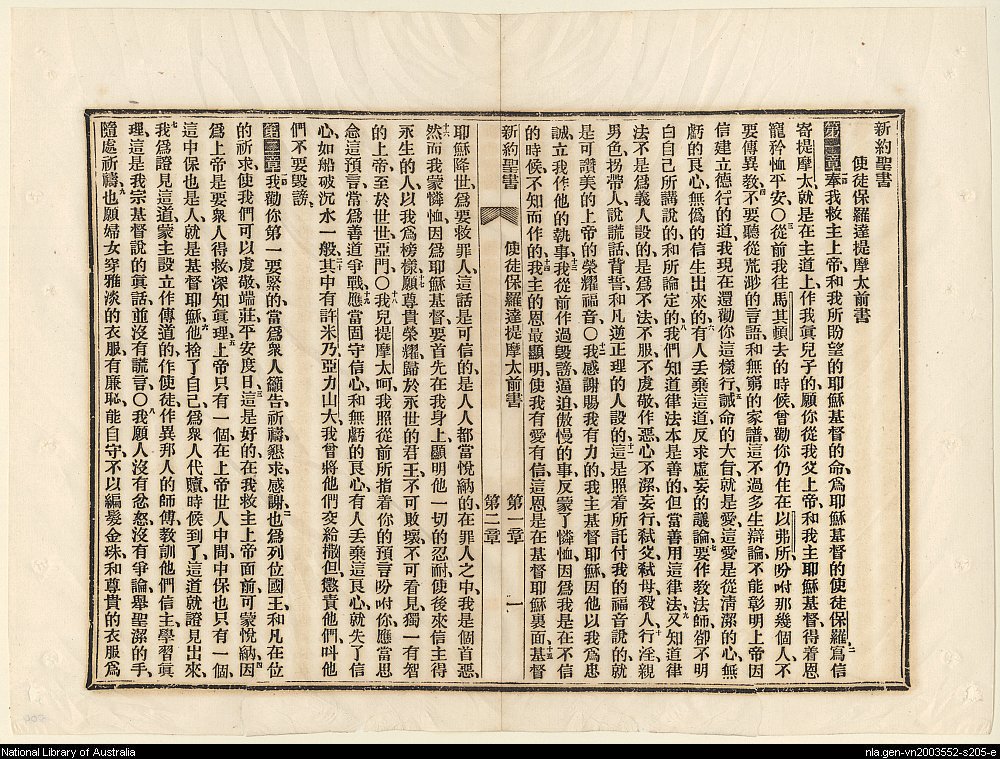 新約聖書
使徒保羅達提摩太前書
第一章奉我救主上帝和我所盼望的耶穌基督的命、爲耶穌基督的使徒保羅、二寫信
寄提摩太、就是在主道上作我眞兒子的、願你從我父上帝、和我主耶穌基督、得着恩
寵矜恤平安、〇三從前我往馬其頓去的時候、曾勸你仍住在以弗所、吩咐那幾個人、不
要傳異教、四不要聽從荒渺的言語、和無窮的家譜、這不過多生辯論、不能彰明上帝因
信建立德行的道、我現在還勸你這樣行、五誡命的大旨、就是愛、這愛是從清潔的心、無
虧的良心、無僞的信生出來的、六有人丟棄這道、反求虛妄的議論、七要作教法師、卻不明
白自己所講說的、和所論定的、八我們知道律法本是善的、但當善用這律法、九又知道律
法不是爲義人設的、是爲不法不服、不虔敬作惡、心不潔妄行、弒父弒母殺人、十行淫親
男色、拐帶人、說謊話、背誓、和凡逆正理的人設的、十一這是照着所託付我的福音說的、就
是可讚美的上帝的榮耀福音〇十二我感謝賜我有力的我主基督耶穌、因他以我爲忠
誠、立我作他的執事、十三我從前作過毀謗逼迫傲慢的事、反蒙了憐恤、因爲我是在不信
的時候、不知而作的、十四我主的恩最顯明、使我有愛有信、這恩是在基督耶穌裏面、十五基督
新約聖書
使徒保羅達提摩太前書
第一章
第二章
一
耶穌降世、爲要救罪人、這話是可信的、是人人都當悅納的、在罪人之中我是個首惡、
十六然而我蒙憐恤、因爲耶穌基督要首先在我身上顯明他一切的忍耐、使後來信主得
永生的人、以我爲榜樣、十七願尊貴榮耀、歸於永世的君王、不可敗壞不可看見、獨一有智
的上帝、至於世世、亞門〇十八我兒提摩太呵、我照從前所指着你的預言、吩咐你、應當思
念這預言、當爲善道爭戰、十九應當固守信心、和無虧的良心、有人丟棄這良心、就失了信
心、如船破沉水一般、二十其中有許米乃、亞力山大、我曾將他們交給撒但、懲責他們、叫他
們不要毀謗
第二章一我勸你第一要緊的、當爲衆人籲告祈禱懇求感謝、二也爲列位國王、和凡在位
的祈求、使我們可以虔敬端莊平安度日、三這是好的、在我救主上帝面前、可蒙悅納、四因
爲上帝是要衆人得救、深知眞理、五上帝只有一個、在上帝世人中間、中保也只有一個、
這中保也是人、就是基督耶穌、六他捨了自己、爲衆人代贖、時候到了、這道就證見出來、
七我爲證見這道、蒙主設立作傳道的、作使徒、作異邦人的師傅、教訓他們信主學習眞
理、這是我宗基督說的眞話、並沒有謊言、〇八我願人沒有忿怒、沒有爭論、舉聖潔的手、
隨處祈禱、九也願婦女穿雅淡的衣服、有廉恥、能自守、不以編髮金珠、和尊貴的衣服爲
National Library of Australia
nla.gen-vn2003552-s205-e